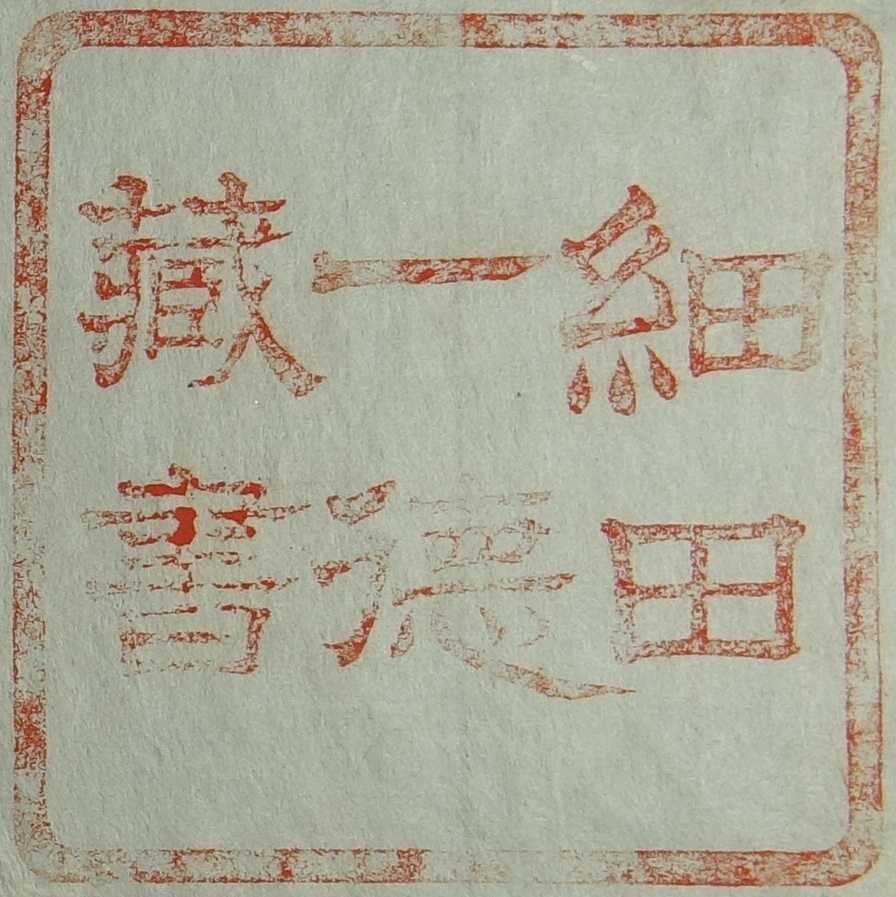 細田
一德
藏書